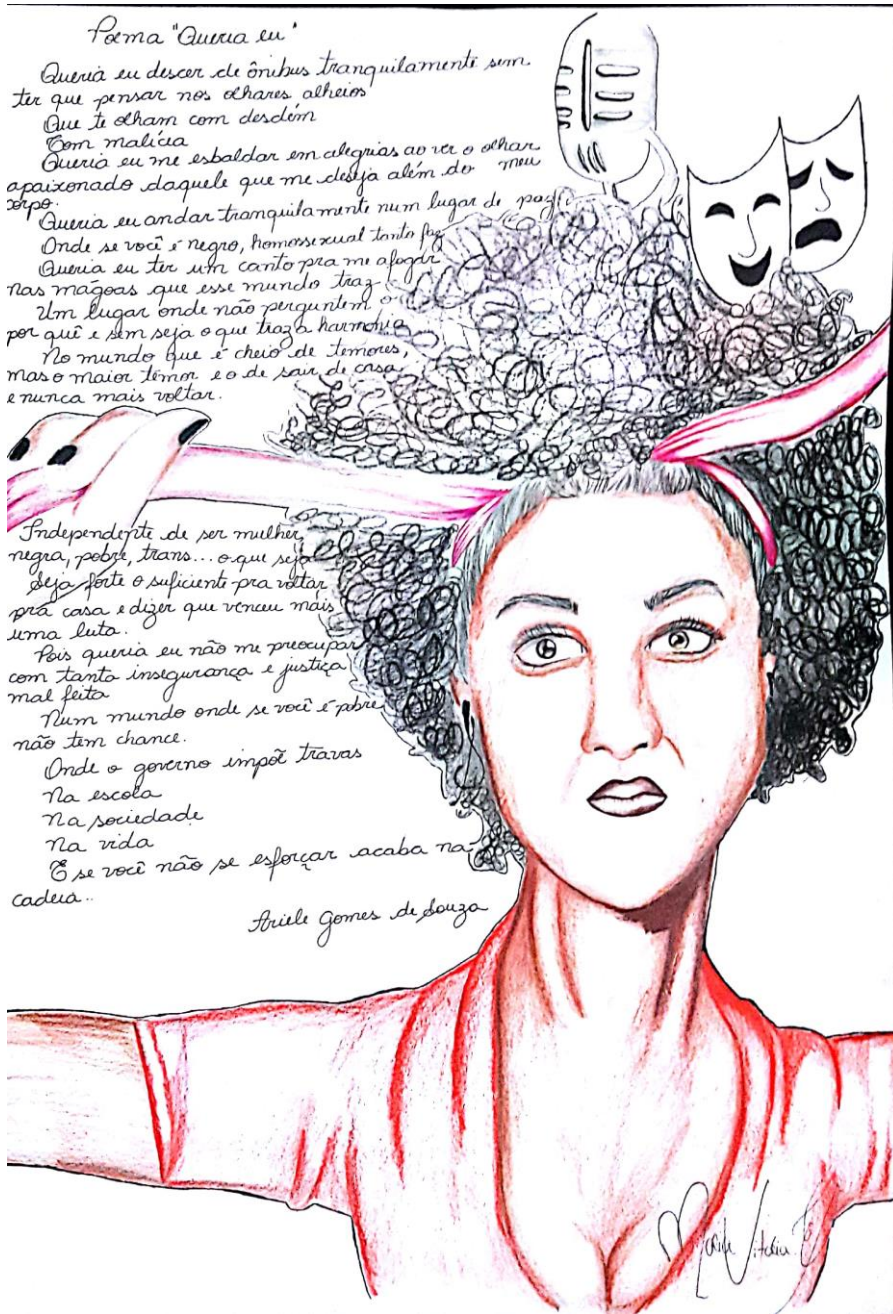 Poema "Queria eu"
Queria eu descer de ônibus tranquilamente sem
ter que pensar nos olhares alheios
Que te olham com desdém
Com malícia
Queria eu me esbaldar em alegrias ao ver o olhar
apaixonado daquele que me deseja além do meu
corpo.
Queria eu andar tranquilamente num lugar de paz
Onde se você é negro, homossexual tanto faz
Queria eu ter um canto pra me afogar
nas mágoas que esse mundo traz
Um lugar onde não perguntem o
por quê e sim seja o que traz a harmonia
No mundo que é cheio de temores,
mas o maior temor e o de sair de casa
e nunca mais voltar.
Independente de ser mulher,
negra, pobre, trans... o que seja
Seja forte o suficiente pra voltar
pra casa e dizer que venceu mais
uma luta.
Pois queria eu não me preocupar
com tanta insegurança e justiça
mal feita
Num mundo onde se você é pobre
não tem chance.
Onde o governo impõe travas
Na escola
Na sociedade
Na vida
E se você não se esforçar acaba na
cadeia..
Ariele Gomes de Souza
Vitória